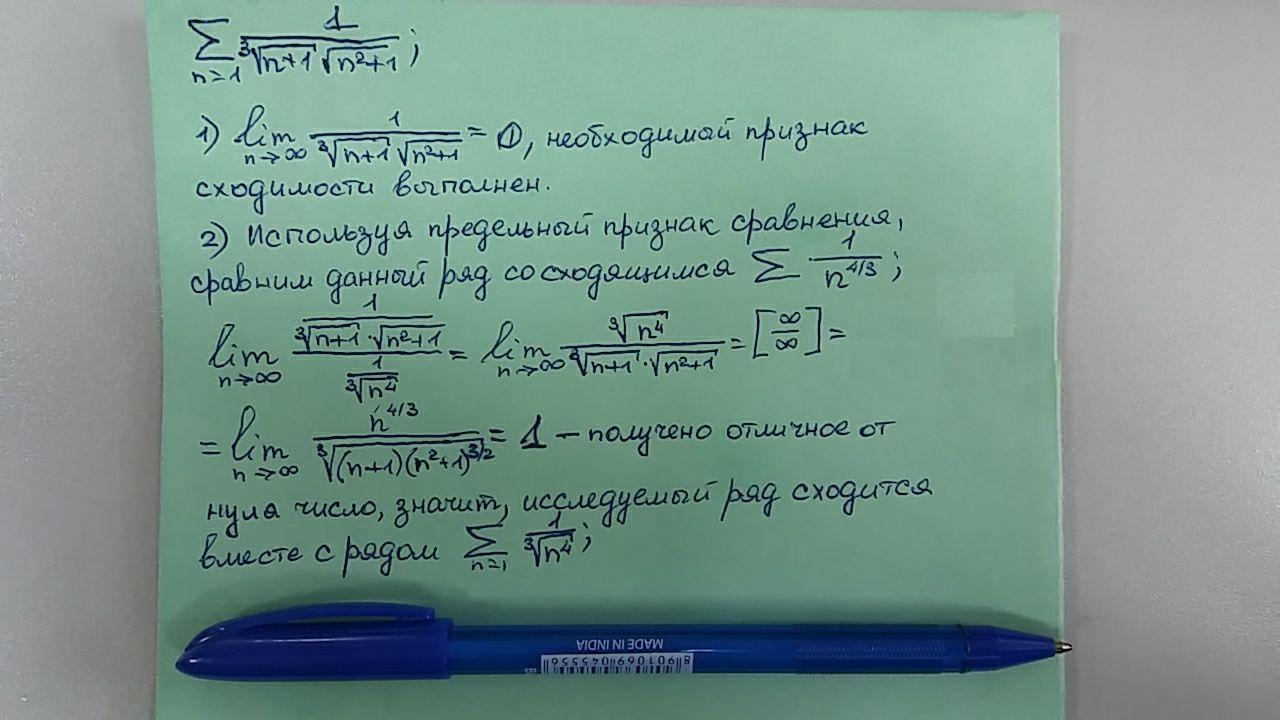 ∑ n=1 1/(∛(n+1) √(n²+1));
1) lim n→∞ 1/(∛(n+1) √(n²+1)) = 0, необходимый признак
сходимости выполнен.
2) Используя предельный признак сравнения,
сравним данный ряд со сходящимся ∑ 1/n^(4/3);
lim n→∞ (1/(∛(n+1)·√(n²+1)))/(1/∛(n⁴)) = lim n→∞ ∛(n⁴)/(∛(n+1)·√(n²+1)) = [∞/∞] =
= lim n→∞ n^(4/3)/∛((n+1)(n²+1)^(3/2)) = 1 – получено отличное от
нуля число, значит, исследуемый ряд сходится
вместе с рядом ∑ n=1 1/∛(n⁴);
MADE IN INDIA
8901069045556